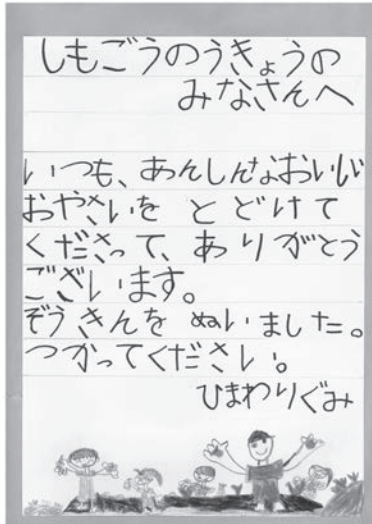 しもごうのうきょうの
みなさんへ
いつも、あんしんなおいしい
おやさいを とどけて
くださって、ありがとう
ございます。
ぞうきんを ぬいました。
つかってください。
ひまわりぐみ